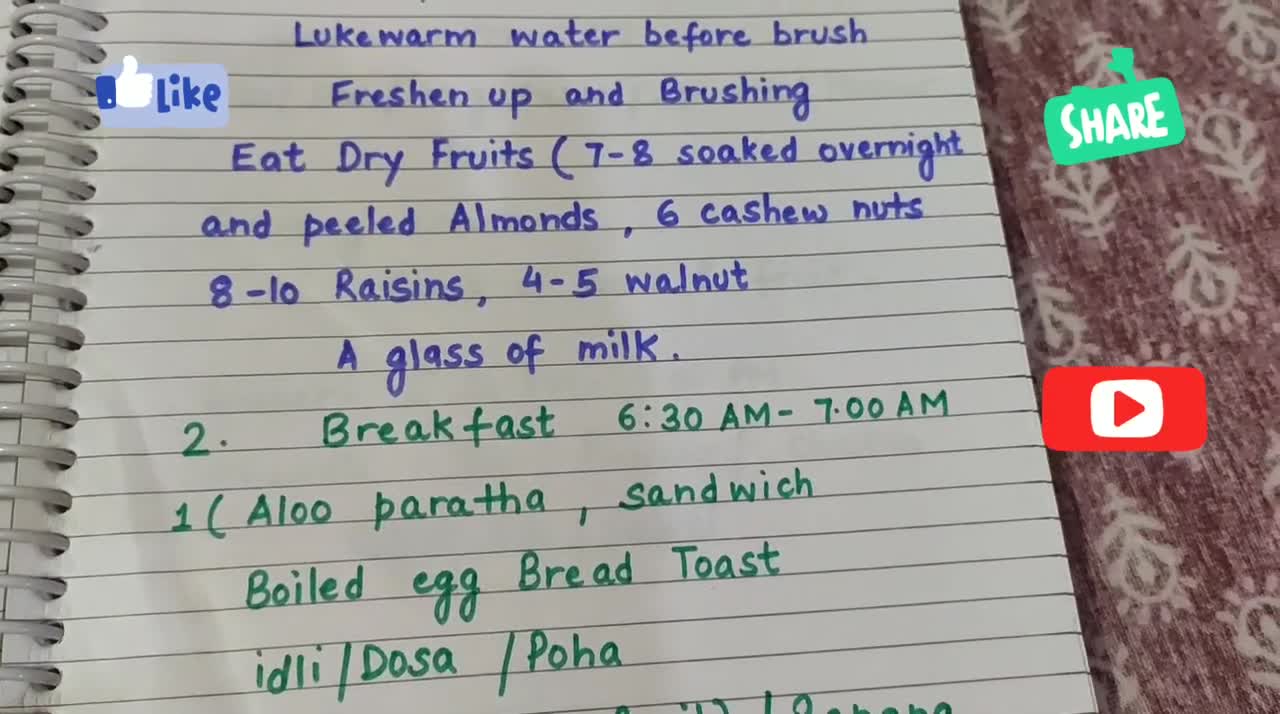 Lukewarm water before brush
Like
Freshen up and Brushing
SHARE
Eat Dry Fruits ( 7-8 soaked overnight
and peeled Almonds , 6 cashew nuts
8-10 Raisins, 4-5 walnut
A glass of milk.
2. Breakfast 6:30 AM- 7.00 AM
1( Aloo paratha , sandwich
Boiled egg Bread Toast
idli/Dosa /Poha